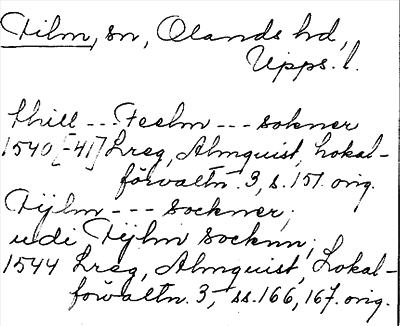 Film, sn, Olands hd,
Upps. l.
thill --- Feelm --- sokner
1540[-41] Lreg, Almquist, Lokal-
förvaltn. 3, s. 151. orig.
Fijlm --- sockner;
udi Fijlm socknn;
1544 Lreg, Almquist, Lokal-
förvaltn. 3, ss. 166, 167. orig.